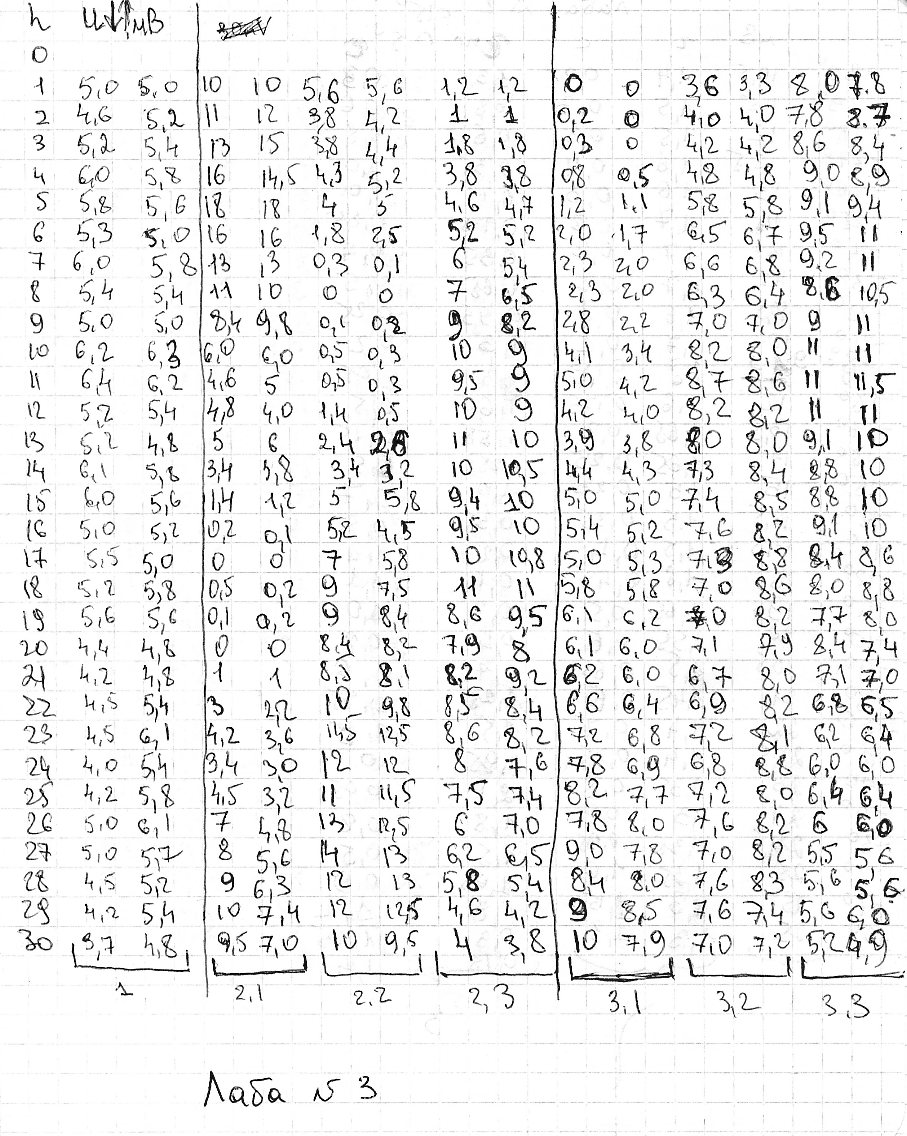 h U↓↑,мВ
0
1 5,0 5,0 10 10 5,6 5,6 1,2 1,2 0 0 3,6 3,3 8,0 7,8
2 4,6 5,2 11 12 3,8 4,2 1 1 0,2 0 4,0 4,0 7,8 8,7
3 5,2 5,4 13 15 3,8 4,4 1,8 1,8 0,3 0 4,2 4,2 8,6 8,4
4 6,0 5,8 16 14,5 4,3 5,2 3,8 3,8 0,8 0,5 4,8 4,8 9,0 8,9
5 5,8 5,6 18 18 4 5 4,6 4,7 1,2 1,1 5,8 5,8 9,1 9,4
6 5,3 5,0 16 16 1,8 2,5 5,2 5,2 2,0 1,7 6,5 6,7 9,5 11
7 6,0 5,8 13 13 0,3 0,1 6 5,4 2,3 2,0 6,6 6,8 9,2 11
8 5,4 5,4 11 10 0 0 7 6,5 2,3 2,0 6,3 6,4 8,6 10,5
9 5,0 5,0 8,4 9,8 0,1 0,2 9 8,2 2,8 2,2 7,0 7,0 9 11
10 6,2 6,3 6,0 6,0 0,5 0,3 10 9 4,1 3,4 8,2 8,0 11 11
11 6,4 6,2 4,6 5 0,5 0,3 9,5 9 5,0 4,2 8,7 8,6 11 11,5
12 5,2 5,4 4,8 4,0 1,4 0,5 10 9 4,2 4,0 8,2 8,2 11 11
13 5,2 4,8 5 6 2,4 11 10 3,9 3,8 8,0 8,0 9,1 10
14 6,1 5,8 3,4 3,8 3,4 3,2 10 10,5 4,4 4,3 7,3 8,4 8,8 10
15 6,0 5,6 1,4 1,2 5 5,8 9,4 10 5,0 5,0 7,4 8,5 8,8 10
16 5,0 5,2 0,2 0,1 5,2 4,5 9,5 10 5,4 5,2 7,6 8,2 9,1 10
17 5,5 5,0 0 0 7 5,8 10 10,8 5,0 5,3 7,3 8,8 8,4 8,6
18 5,2 5,8 0,5 0,2 9 7,5 11 11 5,8 5,8 7,0 8,6 8,0 8,8
19 5,6 5,6 0,1 0,2 9 8,4 8,6 9,5 6,1 6,2 8,2 7,7 8,0
20 4,4 4,8 0 0 8,4 8,2 7,9 8 6,1 6,0 7,1 7,9 8,4 7,4
21 4,2 4,8 1 1 8,5 8,1 8,2 9,2 6,2 6,0 6,7 8,0 7,1 7,0
22 4,5 5,4 3 2,2 10 9,8 8,5 8,4 6,6 6,4 6,9 8,2 6,8 6,5
23 4,5 6,1 4,2 3,6 11,5 12,5 8,6 8,2 7,2 6,8 7,2 8,1 6,2 6,4
24 4,0 5,4 3,4 3,0 12 12 8 7,6 7,8 6,9 6,8 8,8 6,0 6,0
25 4,2 5,8 4,5 3,2 11 11,5 7,5 7,4 8,2 7,7 7,2 8,0 6,4 6,4
26 5,0 6,1 7 4,8 13 12,5 6 7,0 7,8 8,0 7,6 8,2 6 6,0
27 5,0 5,7 8 5,6 14 13 6,2 6,5 9,0 7,8 7,0 8,2 5,5 5,6
28 4,5 5,2 9 6,3 12 13 5,8 5,4 8,4 8,0 7,6 8,3 5,6 5,6
29 4,2 5,4 10 7,4 12 12,5 4,6 4,2 9 8,5 7,6 7,4 5,6 6,0
30 3,7 4,8 9,5 7,0 10 9,5 4 3,8 10 7,9 7,0 7,2 5,2 4,9
1 2,1 2,2 2,3 3,1 3,2 3.3
Лаба № 3